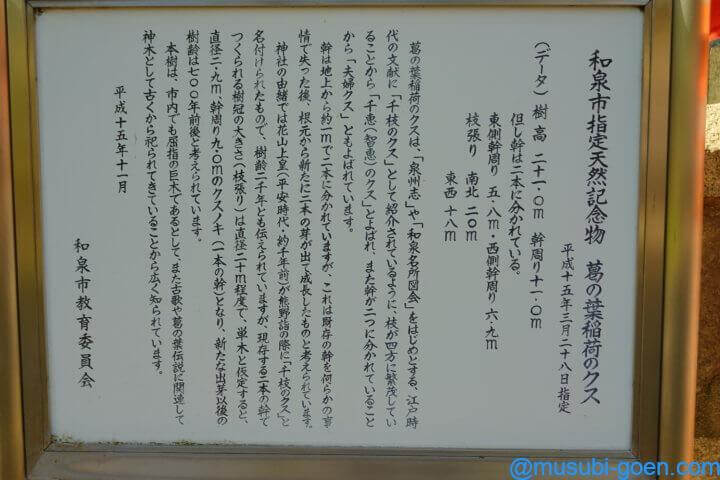 和泉市指定天然記念物　葛の葉稲荷のクス
平成十五年三月二十八日指定
（データ）樹高　二十一・〇m　幹周り十一・〇m
但し幹は二本に分かれている。
東側幹周り　五・八m・西側幹周り　六・九m
枝張り　南北　二〇m
東西　十八m
葛の葉稲荷のクスは、「泉州志」や「和泉名所図会」をはじめとする、江戸時
代の文献に「千枝のクス」として紹介されているように、枝が四方に繁茂してい
ることから「千恵（智恵）のクス」とよばれ、また幹が二つに分かれていること
から「夫婦クス」ともよばれています。
幹は地上から約一mで二本に分かれていますが、これは既存の幹を何らかの事
情で失った後、根元から新たに二本の芽が出て成長したものと考えられています。
神社の由緒では花山上皇（平安時代・約千年前）が熊野詣の際に「千枝のクス」と
名付けられたもので、樹齢二千年とも伝えられていますが、現存する二本の幹で
つくられる樹冠の大きさ（枝張り）は直径二十m程度で、単木と仮定すると、
直径二・九m、幹周り九・〇mのクスノキ（一本の幹）となり、新たな出芽以後の
樹齢は七〇〇年前後と考えられています。
本樹は、市内でも屈指の巨木であるとして、また古歌や葛の葉伝説に関連して
神木として古くから祀られてきていることから広く知られています。
平成十五年十一月
和泉市教育委員会
@musubi-goen.com